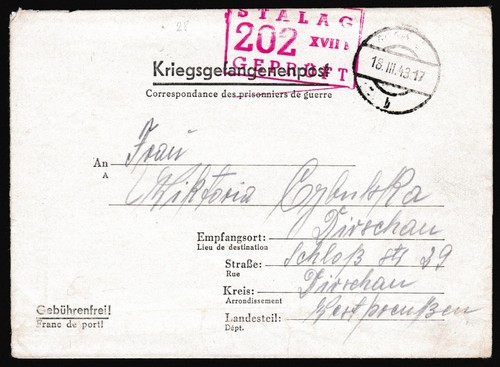 28
STALAG
202 XVII B
GEPRÜFT
18.III.43.17
b
Kriegsgefangenenpost
Correspondance des prisonniers de guerre
Frau
An
A
Wiktoria Cybulska
Empfangsort: Dirschau
Lieu de destination
Straße: Schloß str 29
Rue
Kreis: Dirschau
Arrondissement
Landesteil: Westpreußen
Dépt.
Gebührenfrei!
Franc de port!